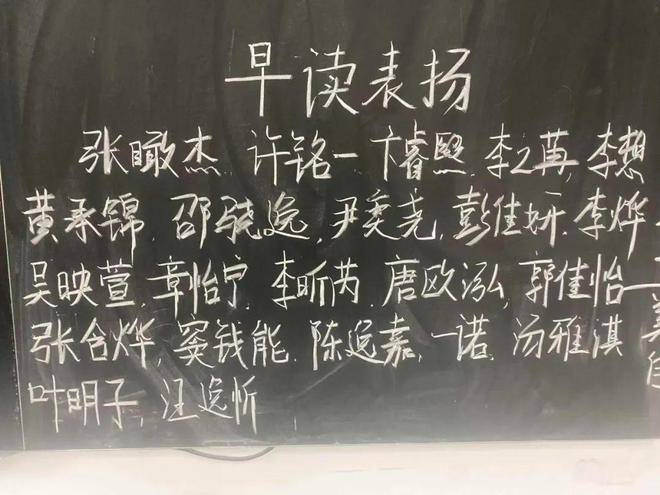 早读表扬
张瞰杰.许铭一.卞睿熙.李之苒.李想
黄承锦.邵骁逸.尹奕尧.彭佳妍.李烨
吴映萱.章怡宁.李昕芮.唐欧泓.郭佳怡
张合烨.窦钱能.陈逸嘉.一诺.汤雅淇
叶明子.汪逸忻